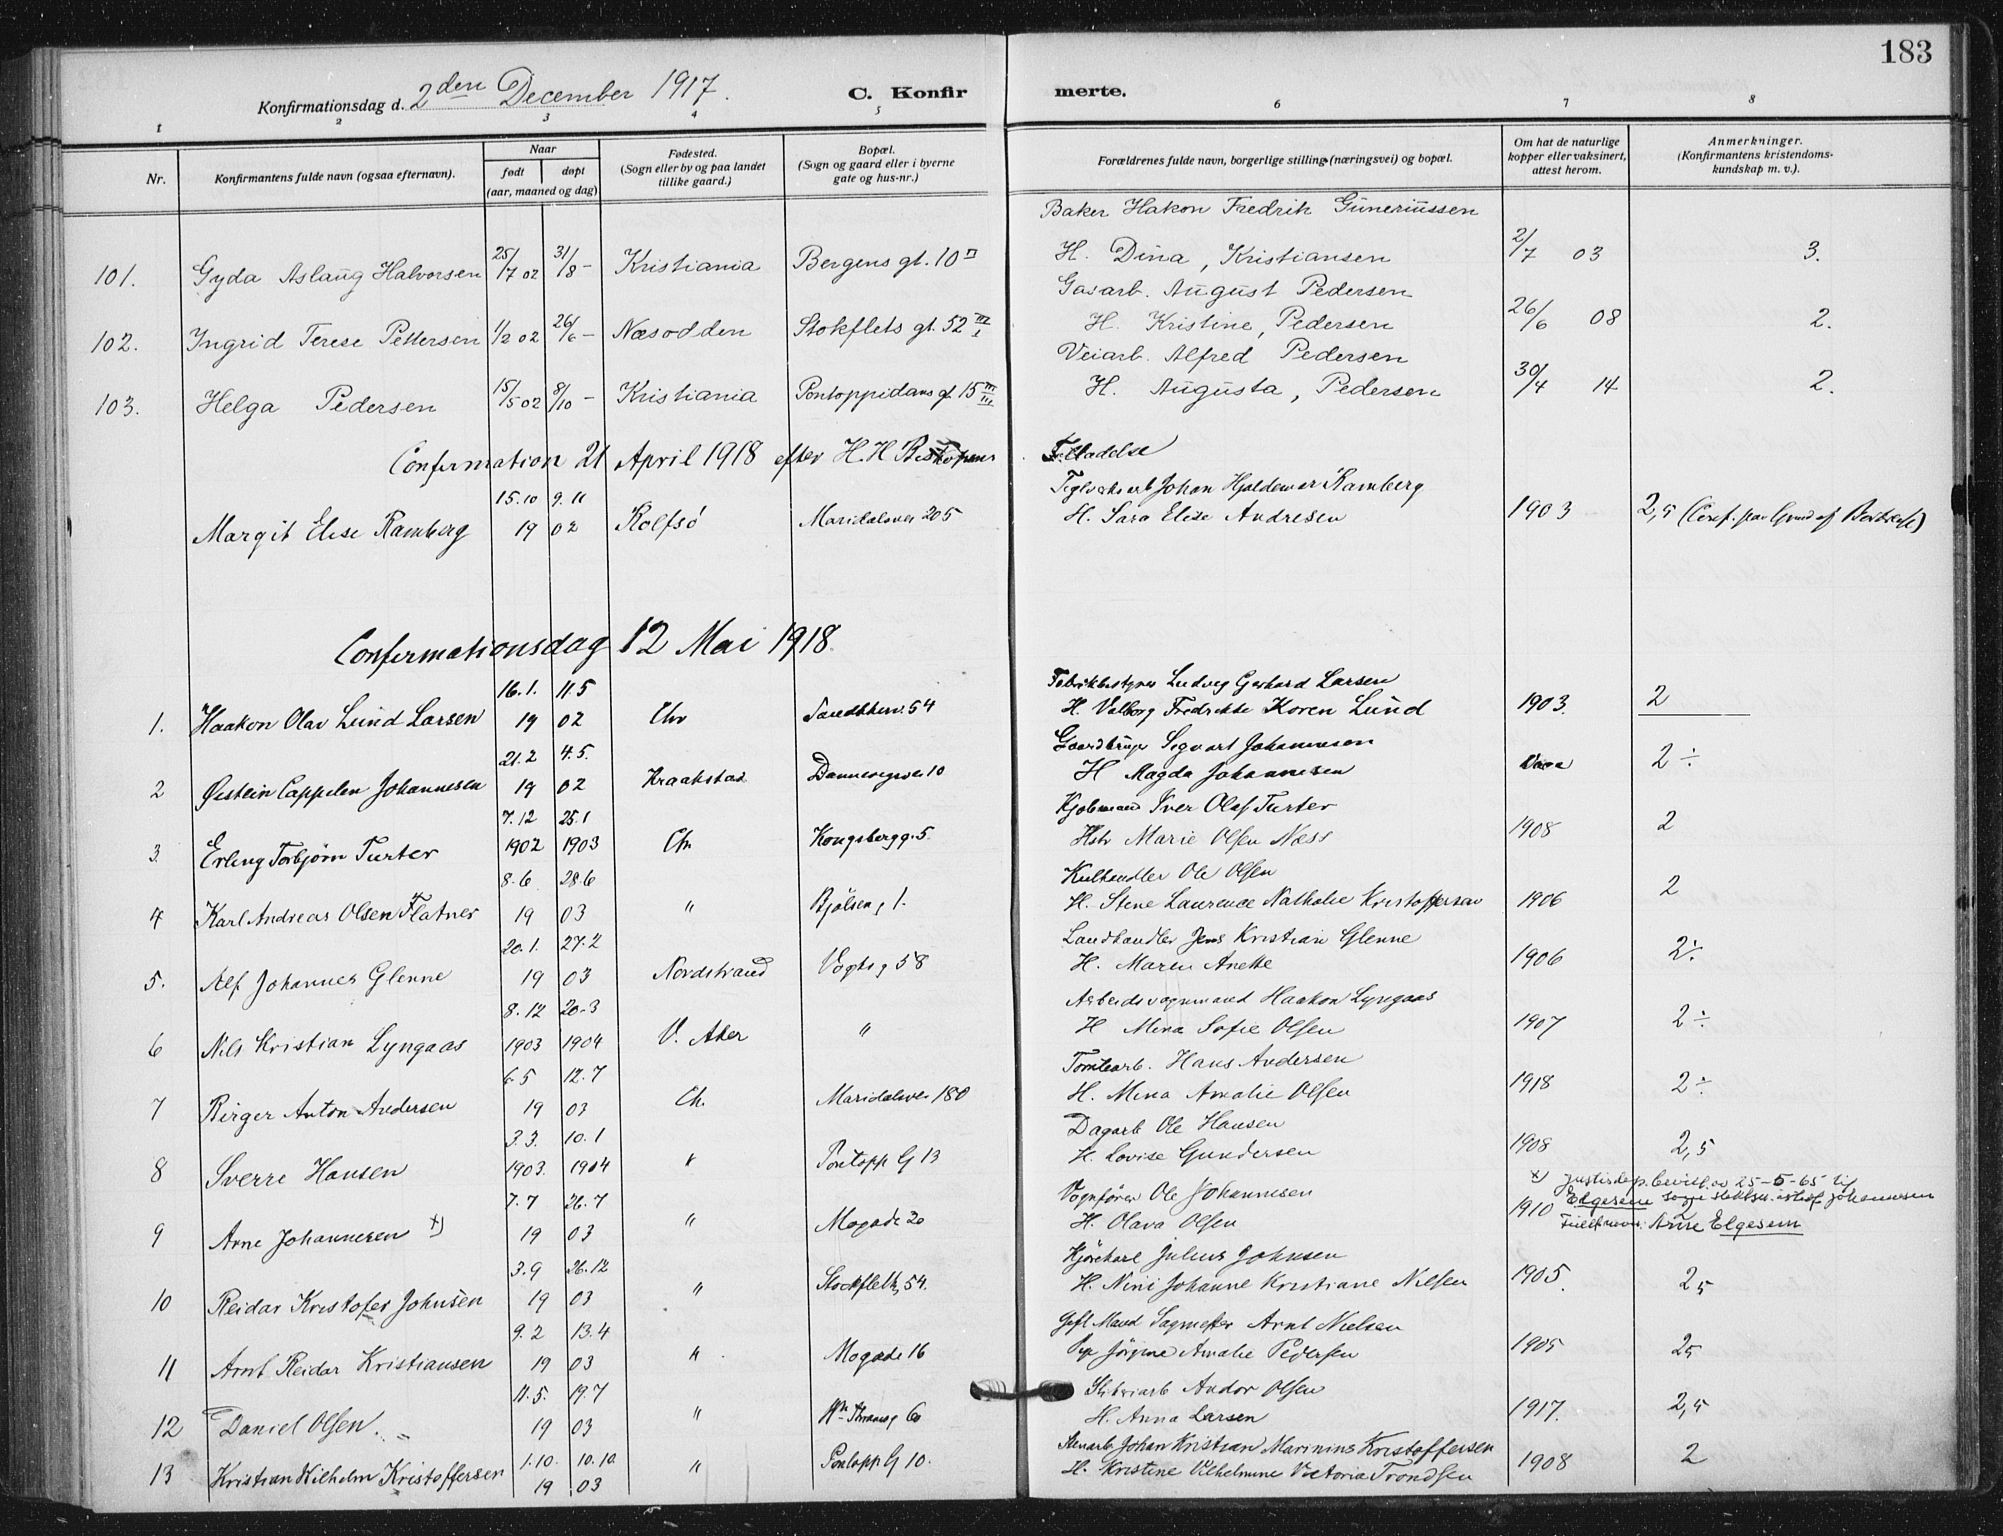 183
Konfirmationsdag d. 2den December 1917.
C. Konfirmerte.
1 2 3 4 5 6 7 8
Nr.
Konfirmantens fulde navn (ogsaa efternavn).
Naar
født døpt
(aar, maaned og dag)
Fødested.
(Sogn eller by og paa landet
tillike gaard.)
Bopæl.
(Sogn og gaard eller i byerne
gate og hus-nr.)
Forældrenes fulde navn, borgerlige stilling (næringsvei) og bopæl.
Om hat de naturlige
kopper eller vaksinert,
attest herom.
Anmerkninger.
(Konfirmantens kristendoms-
kundskap m. v.).
Baker Hakon Fredrik Guneriussen
101. Gyda Aslaug Halvorsen 25/7 02 31/8 – Kristiania Bergens gt. 10 II H. Dina, Kristiansen 2/7 03 3.
Gasarb. August Pedersen
102. Ingrid Terese Pettersen 1/2 02 26/6 – Næsodden Stokflets gt. 52 III I H. Kristine, Pedersen 26/6 08 2.
Veiarb. Alfred Pedersen
103. Helga Pedersen 15/5 02 8/10 – Kristiania Pontoppidans gt. 15 III III H. Augusta, Pedersen 30/4 14 2.
Confirmation 21 April 1918 efter H. H Biskopens Tilladelse
15.10 9.11 Teglverksarb Johan Hjaldemar Ramberg
Margit Elise Ramberg 19 02 Rolfsö Maridalsvei 205 H. Sara Elise Andresen 1903 2,5 (Conf. paa Grund af
Confirmationsdag 12 Mai 1918.
16.1. 11.5 Fabrikbestyrer Ludvig Gerhard Larsen
1. Haakon Olav Lund Larsen 19 02 Chr 54 H. Valborg Fredrikke Koren Lund 1903. 2
21.2 4.5. Gaardbruger Sigvart Johannesen
2 Øistein Cappelen Johannesen 19 02 Kraakstad Dannevigsvei 10 H Magda Johannesen 2 ÷
7.12 25.1 Kjøbmand Iver Olaf Turter
3. Erling Torbjørn Turter 1902 1903 Chr Kongsbergg. 5. Hstr Marie Olsen Næss 1908 2
8.6 28.6 Kulhandler Ole Olsen
4 Karl Andreas Olsen Flatner 19 03 " Bjölsen g 1. H. Stine Laurence Nathalie Kristoffersen 1906 2
20.1. 27.2 Landhandler Jens Kristian Glenne
5. Alf Johannes Glenne 19 03 Nordstrand Vogts g 58 H. Maren Anette 1906 2 ÷
8.12 20.3 Arbeidsvognmand Haakon Lyngaas
6 Nils Kristian Lyngaas 1903 1904 V. Aker " H Mina Sofie Olsen 1907 2 ÷
6.5 12.7 Tomtearb. Hans Andersen
7 Birger Anton Andersen 19 03 Ch. Maridalsvei 180 H. Mina Amalie Olsen 1918 2 ÷
3.3. 10.1 Dagarb Ole Hansen
8 Sverre Hansen 1903. 1904 " Pontopp G 13 H. Lovise Gundersen 1908 2,5
x) Justisdep. bevilln. av 25-5-65 til
7.7 26.7 Vognfører Ole Johannesen Elgesem som slektsn. istf. Johannesen
9 Arne Johannesen x) 19 03 " Mogade 20 H. Olava Olsen 1910 Fullt navn: Arne Elgesem
3.9 26.12 Kjörekarl Julius Johnsen
10 Reidar Kristofer Johnsen 19 03 " Stockfleth, 54. H. Nini Johanne Kristiane Nilsen 1905. 2 5
9.2 13.4 Gift Mand Sagmester Arnt Nielsen
11 Arnt Reidar Kristiansen 19 03 " Mogade 16 Pige Jörgine Amalie Pedersen 1905 25
11.5. 19.7 Andor Olsen
12 Daniel Olsen. 19 03 " 6 H. Anna Larsen 1917. 2,5
1.10. 10.10. Stenarb Johan Kristian Marinius Kristoffersen
13 Kristian Wilhelm Kristoffersen 19 03 " Pontopp G 10. H. Kristine Vilhelmine Victoria Trondsen 1908 2